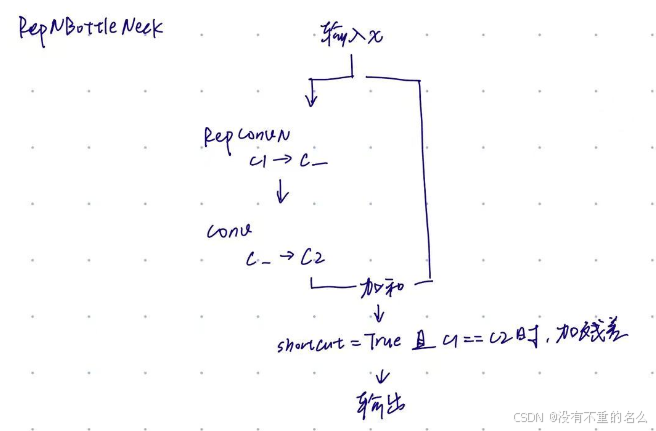 RepNBottleNeck
输入x
RepConvN
c1 → c_
Conv
c_ → c2
加和
shortcut = True 且 c1 == c2时, 加残差
输出
CSDN @没有不重的名么